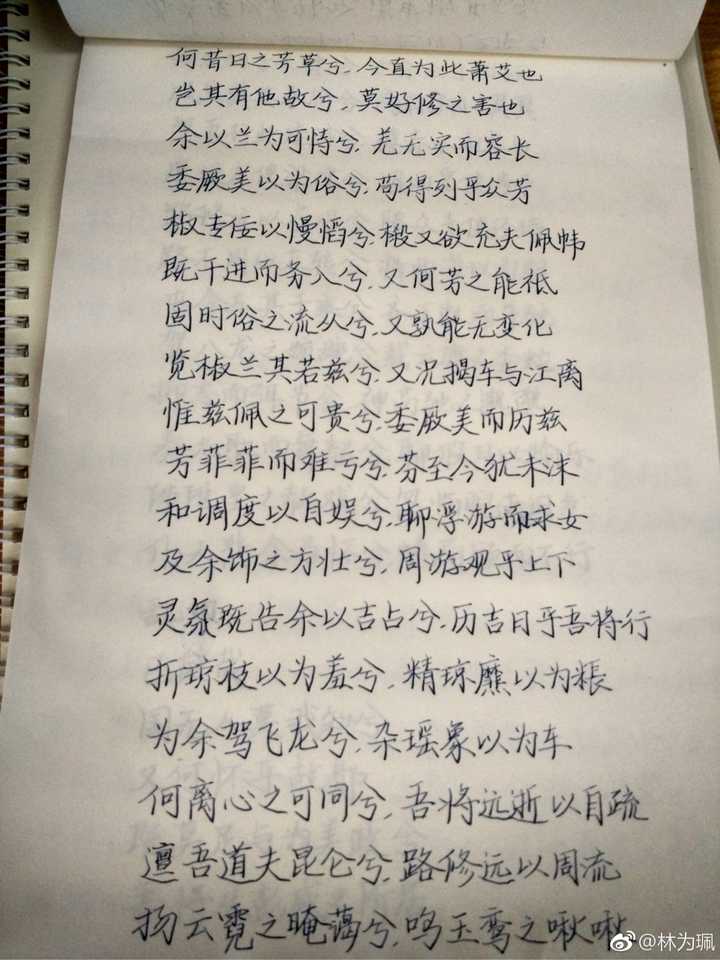 何昔日之芳草兮，今直为此萧艾也
岂其有他故兮，莫好修之害也
余以兰为可恃兮，羌无实而容长
委厥美以为俗兮，苟得列乎众芳
椒专佞以慢慆兮，榝又欲充夫佩帏
既干进而务入兮，又何芳之能祗
固时俗之流从兮，又孰能无变化
览椒兰其若兹兮，又况揭车与江离
惟兹佩之可贵兮，委厥美而历兹
芳菲菲而难亏兮，芬至今犹未沫
和调度以自娱兮，聊浮游而求女
及余饰之方壮兮，周游观乎上下
灵氛既告余以吉占兮，历吉日乎吾将行
折琼枝以为羞兮，精琼爢以为粻
为余驾飞龙兮，杂瑶象以为车
何离心之可同兮，吾将远逝以自疏
邅吾道夫昆仑兮，路修远以周流
扬云霓之晻蔼兮，鸣玉鸾之啾啾
@林为珮